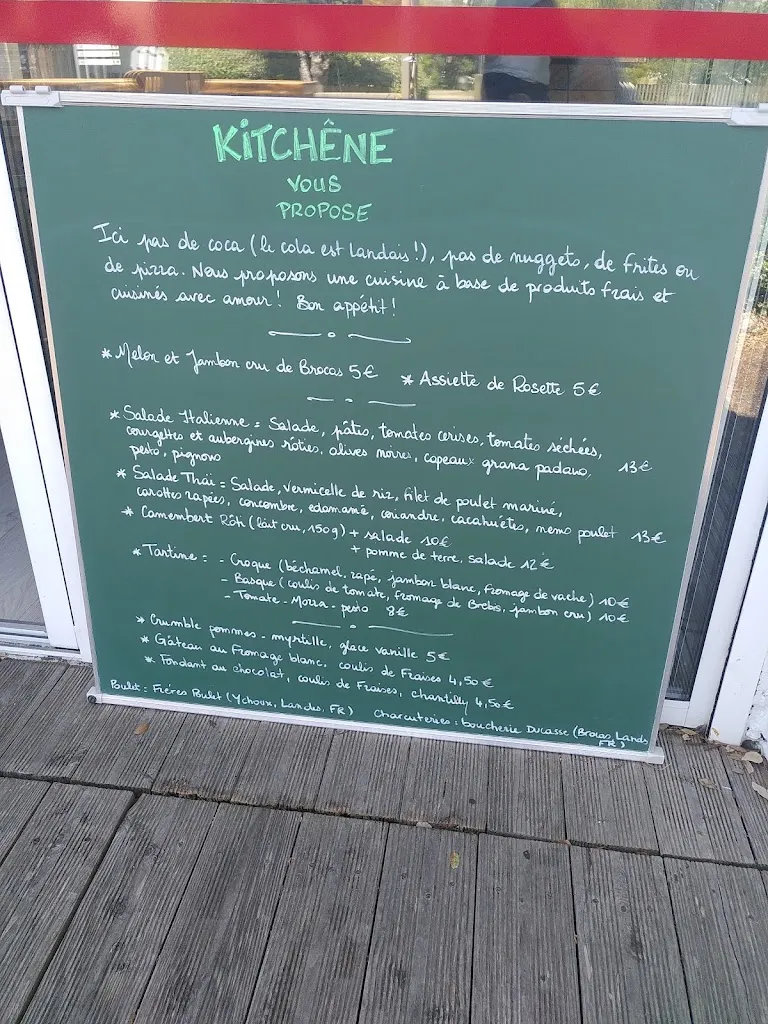 KITCHÊNE
VOUS
PROPOSE
Ici pas de coca (le cola est landais !), pas de nuggets, de frites ou
de pizza. Nous proposons une cuisine à base de produits frais et
cuisinés avec amour ! Bon appétit !
* Melon et Jambon cru de Brocas 5€ * Assiette de Rosette 5€
* Salade Italienne = Salade, pâtes, tomates cerises, tomates séchées,
courgettes et aubergines rôties, olives noires, copeaux grana padano,
pesto, pignons 13€
* Salade Thaï = Salade, vermicelle de riz, filet de poulet mariné,
carottes rapées, concombre, edamamé, coriandre, cacahuètes, nems poulet 13€
* Camembert Rôti (lait cru, 150g) + salade 10€
+ pomme de terre, salade 12€
* Tartine : - Croque (béchamel, rapé, jambon blanc, fromage de vache) 10€
- Basque (coulis de tomate, fromage de Brebis, jambon cru) 10€
- Tomate - Mozza - pesto 8€
* Crumble pommes - myrtille, glace vanille 5€
* Gâteau au Fromage blanc, coulis de Fraises 4,50€
* Fondant au chocolat, coulis de Fraises, chantilly 4,50€
Poulet : Frères Bulet (Ychoux, Landes, FR) Charcuteries : boucherie Ducasse (Brocas, Landes
FR)